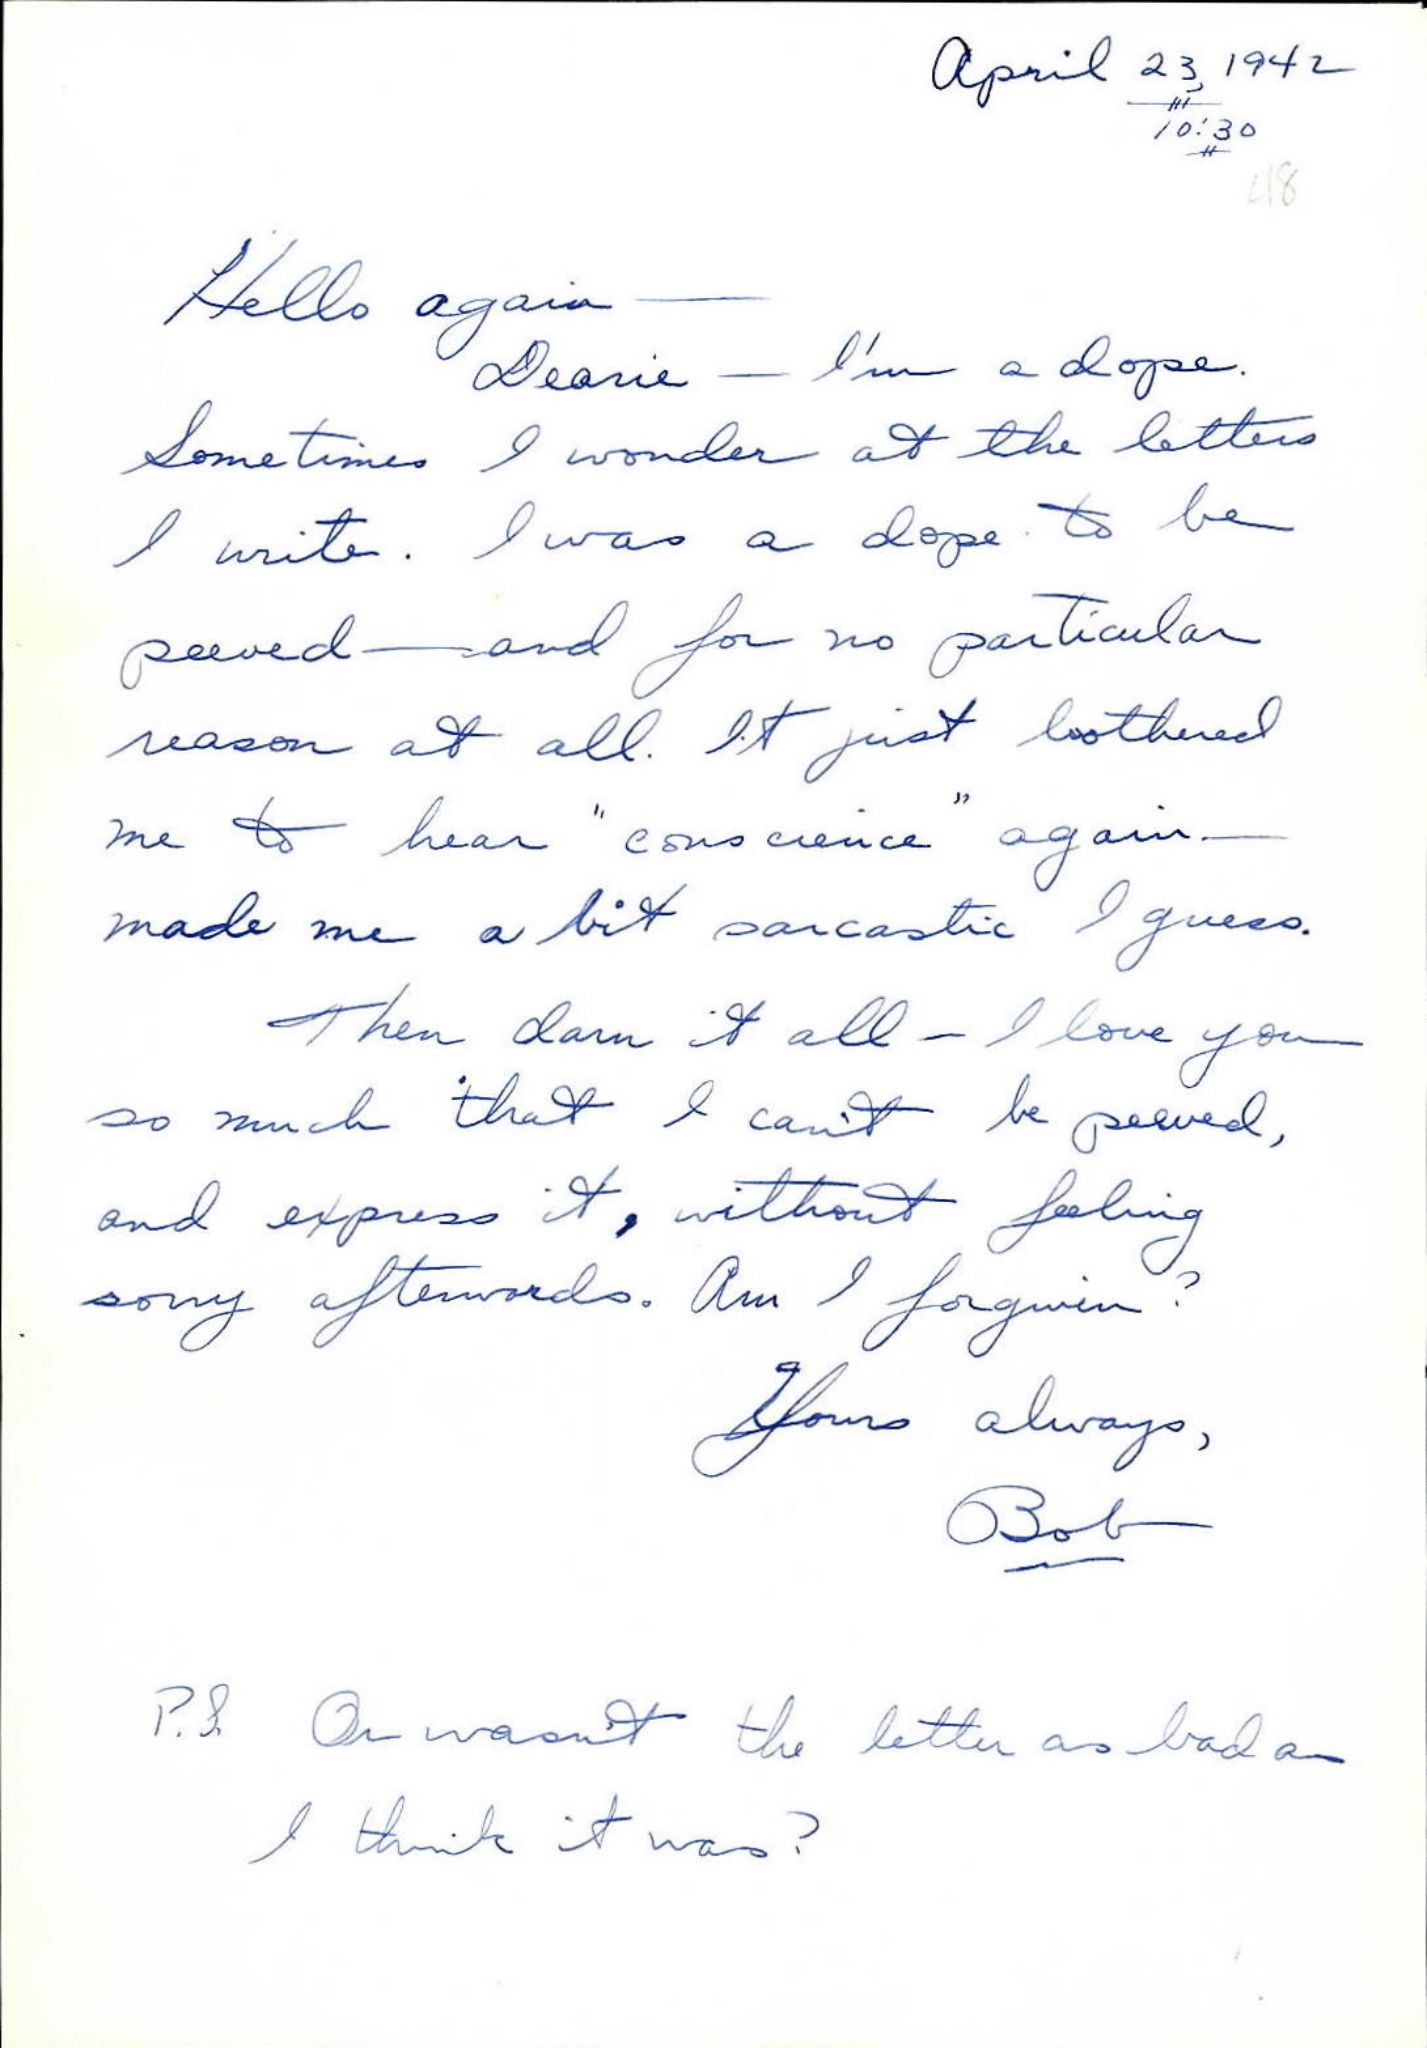 April 23, 1942
10:30
48
Hello again —
Dearie — I'm a dope.
Sometimes I wonder at the letters
I write. I was a dope to be
peeved — and for no particular
reason at all. It just bothered
me to hear "conscience" again —
made me a bit sarcastic I guess.
Then darn it all — I love you
so much that I can't be peeved,
and express it, without feeling
sorry afterwards. Am I forgiven?
Yours always,
Bob
P.S. Or wasn't the letter as bad as
I think it was?